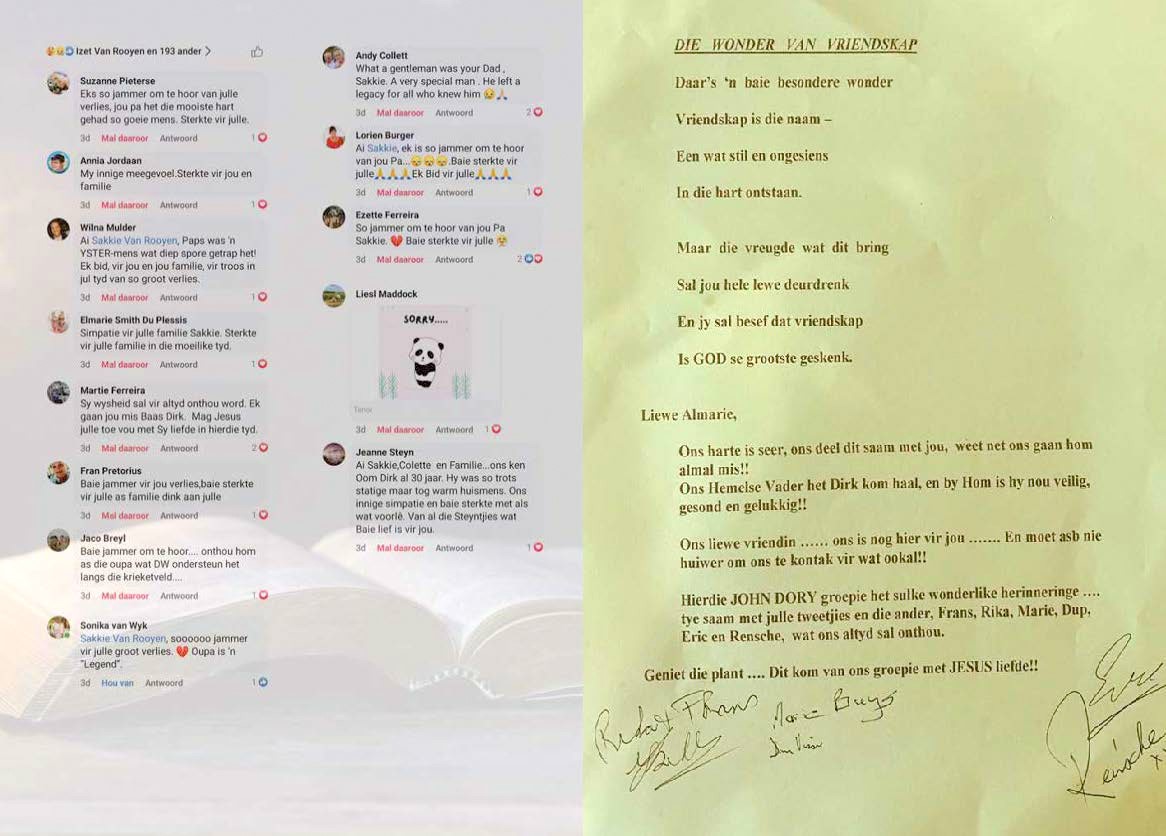 Izet Van Rooyen en 193 ander
Suzanne Pieterse
Eks so jammer om te hoor van julle
verlies, jou pa het die mooiste hart
gehad so goeie mens. Sterkte vir julle.
3d Mal daaroor Antwoord 1
Annia Jordaan
My innige meegevoel.Sterkte vir jou en
familie
3d Mal daaroor Antwoord 1
Wilna Mulder
Ai Sakkie Van Rooyen, Paps was 'n
YSTER-mens wat diep spore getrap het!
Ek bid, vir jou en jou familie, vir troos in
jul tyd van so groot verlies.
3d Mal daaroor Antwoord 1
Elmarie Smith Du Plessis
Simpatie vir julle familie Sakkie. Sterkte
vir julle familie in die moeilike tyd.
3d Mal daaroor Antwoord 1
Martie Ferreira
Sy wysheid sal vir altyd onthou word. Ek
gaan jou mis Baas Dirk. Mag Jesus
julle toe vou met Sy liefde in hierdie tyd.
3d Mal daaroor Antwoord 2
Fran Pretorius
Baie jammer vir jou verlies,baie sterkte
vir julle as familie dink aan julle
3d Mal daaroor Antwoord 1
Jaco Breyl
Baie jammer om te hoor.... onthou hom
as die oupa wat DW ondersteun het
langs die krieketveld....
3d Mal daaroor Antwoord 1
Sonika van Wyk
Sakkie Van Rooyen, soooooo jammer
vir julle groot verlies. 💔 Oupa is 'n
"Legend".
3d Hou van Antwoord 1
Andy Collett
What a gentleman was your Dad ,
Sakkie. A very special man . He left a
legacy for all who knew him 😥🙏
3d Mal daaroor Antwoord 2
Lorien Burger
Ai Sakkie, ek is so jammer om te hoor
van jou Pa...😭😭😭.Baie sterkte vir
julle🙏🙏🙏Ek Bid vir julle🙏🙏🙏
3d Mal daaroor Antwoord 1
Ezette Ferreira
So jammer om te hoor van jou Pa
Sakkie. 💔 Baie sterkte vir julle 😢
3d Mal daaroor Antwoord 2
Liesl Maddock
SORRY.....
Tenor
3d Mal daaroor Antwoord 1
Jeanne Steyn
Ai Sakkie,Colette en Familie...ons ken
Oom Dirk al 30 jaar. Hy was so trots
statige maar tog warm huismens. Ons
innige simpatie en baie sterkte met als
wat voorlê. Van al die Steyntjies wat
Baie lief is vir jou.
3d Mal daaroor Antwoord 1
DIE WONDER VAN VRIENDSKAP
Daar's 'n baie besondere wonder
Vriendskap is die naam –
Een wat stil en ongesiens
In die hart ontstaan.
Maar die vreugde wat dit bring
Sal jou hele lewe deurdrenk
En jy sal besef dat vriendskap
Is GOD se grootste geskenk.
Liewe Almarie,
Ons harte is seer, ons deel dit saam met jou, weet net ons gaan hom
almal mis!!
Ons Hemelse Vader het Dirk kom haal, en by Hom is hy nou veilig,
gesond en gelukkig!!
Ons liewe vriendin ...... ons is nog hier vir jou ....... En moet asb nie
huiwer om ons te kontak vir wat ookal!!
Hierdie JOHN DORY groepie het sulke wonderlike herinneringe ....
tye saam met julle tweetjies en die ander, Frans, Rika, Marie, Dup,
Eric en Rensche, wat ons altyd sal onthou.
Geniet die plant .... Dit kom van ons groepie met JESUS liefde!!
Frans
Rensche